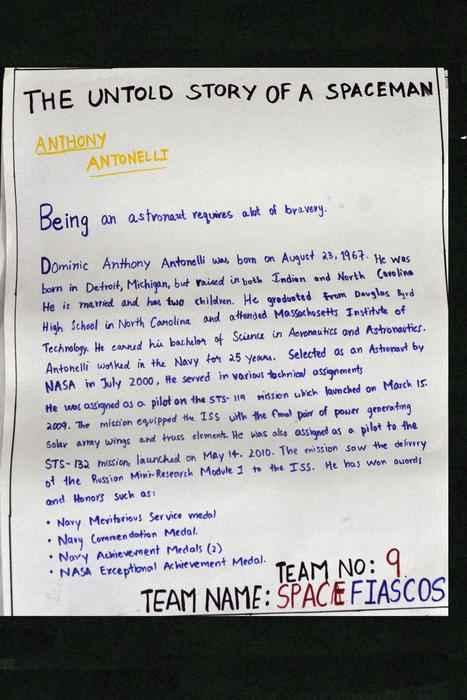 THE UNTOLD STORY OF A SPACEMAN
ANTHONY
ANTONELLI
Being an astronaut requires alot of bravery.
Dominic Anthony Antonelli was born on August 23, 1967. He was
born in Detroit, Michigan, but raised in both Indian and North Carolina
He is married and has two children. He graduated from Douglas Byrd
High School in North Carolina and attended Massachusetts Institute of
Technology. He earned his bachelor of Science in Aeronautics and Astronautics.
Antonelli worked in the Navy for 25 years. Selected as an Astronaut by
NASA in July 2000, He served in various technical assignments
He was assigned as a pilot on the STS-119 mission which launched on March 15.
2009. The mission equipped the ISS with the final pair of power generating
Solar array wings and truss element. He was also assigned as a pilot to the
STS-132 mission, launched on May 14. 2010. The mission saw the delivery
of the Russian Mini-Research Module 1 to the ISS. He has won awards
and Honors such as:
• Navy Meritorious Service medal
• Navy Commendation Medal.
• Navy Achievement Medals (2)
• NASA Exceptional Achievement Medal.
TEAM NO: 9
TEAM NAME: SPACE FIASCOS